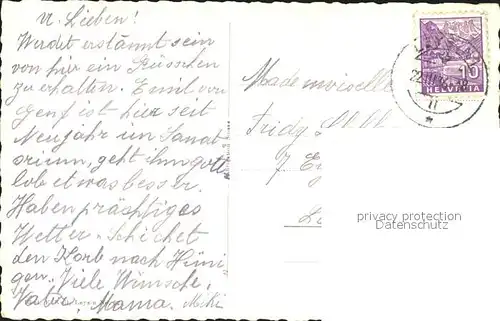 M. Lieben!
Werdet erstaunt sein
von hier ein Küsschen
zu erhalten. Emil von
Genf ist hier seit
Neujahr im Sanat
orium, geht ihm gott
lob etwas besser.
Haben prächtiges
Wetter. Schicket
den Korb nach Hüni
gen. Viele Wünsche,
Vater, Mama.
Mademoiselle
Fridy
7
10
HELVETIA
privacy protection
Datenschutz